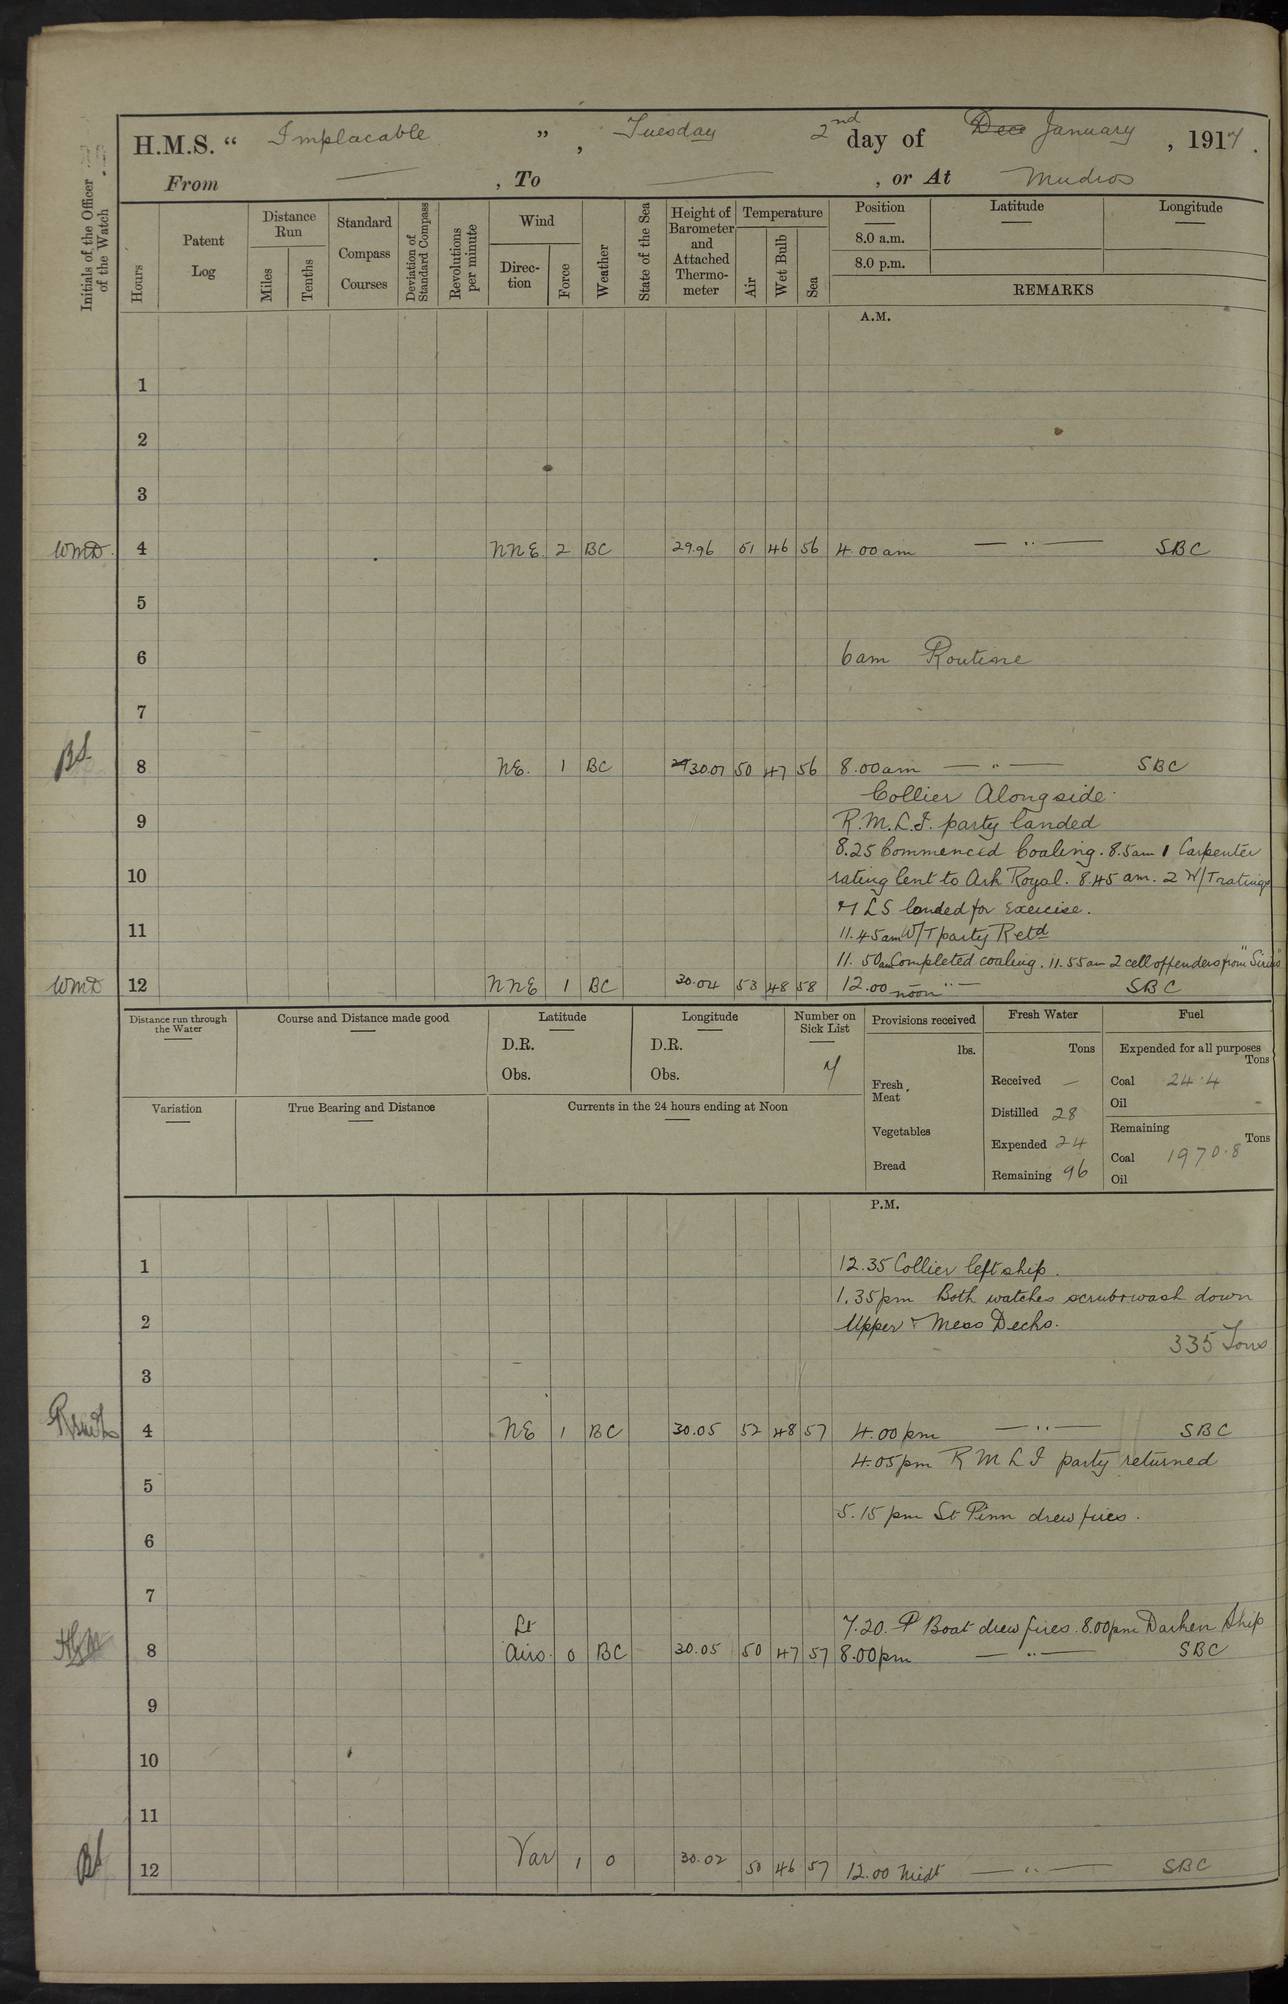 H.M.S. “ Implacable ” , Tuesday 2nd day of Dec January , 1917 .
From — , To — , or At Mudros
Initials of the Officer of the Watch
Hours
Patent Log
Distance Run
Miles
Tenths
Standard Compass Courses
Deviation of Standard Compass
Revolutions per minute
Wind
Direc-tion
Force
Weather
State of the Sea
Height of Barometer and Attached Thermo-meter
Temperature
Air
Wet Bulb
Sea
Position Latitude Longitude
8.0 a.m.
8.0 p.m.
REMARKS
A.M.
1
2
3
WMD. 4 NNE. 2 BC 29.96 51 46 56 4.00am — " — SBC
5
6 6am Routine
7
BS 8 NE. 1 BC 30.01 50 47 56 8.00am — " — SBC
Collier Alongside.
9 R.M.L.I. party landed
8.25 Commenced Coaling. 8.5am 1 Carpenter
10 rating lent to Ark Royal. 8.45 am. 2 W/T ratings
LS landed for exercise.
11 11.45am W/T party Retd
11.50am Completed coaling. 11.55am 2 cell offenders from "Sirius"
WMD 12 NNE 1 BC 30.04 53 48 58 12.00 noon " — SBC
Distance run through the Water
Course and Distance made good
Latitude
D.R.
Obs.
Longitude
D.R.
Obs.
Number on Sick List
7
Provisions received
lbs.
Fresh Meat
Vegetables
Bread
Fresh Water
Tons
Received —
Distilled 28
Expended 24
Remaining 96
Fuel
Expended for all purposes
Tons
Coal 24.4
Oil -
Remaining
Tons
Coal 1970.8
Oil
Variation
True Bearing and Distance
Currents in the 24 hours ending at Noon
P.M.
1 12.35 Collier left ship.
1.35pm Both watches scrub + wash down
2 Upper + Mess Decks.
335 Tons
3
4 NE 1 BC 30.05 52 48 57 4.00pm — " — SBC
4.05pm R M L I party returned
5
5.15 pm St Pinn drew fires.
6
7
7.20. P Boat drew fires. 8.00pm Darken Ship
8 Lt Airs. 0 BC 30.05 50 47 57 8.00pm — " — SBC
9
10
11
BS 12 Var 1 0 30.02 50 46 57 12.00 Midt — " — SBC